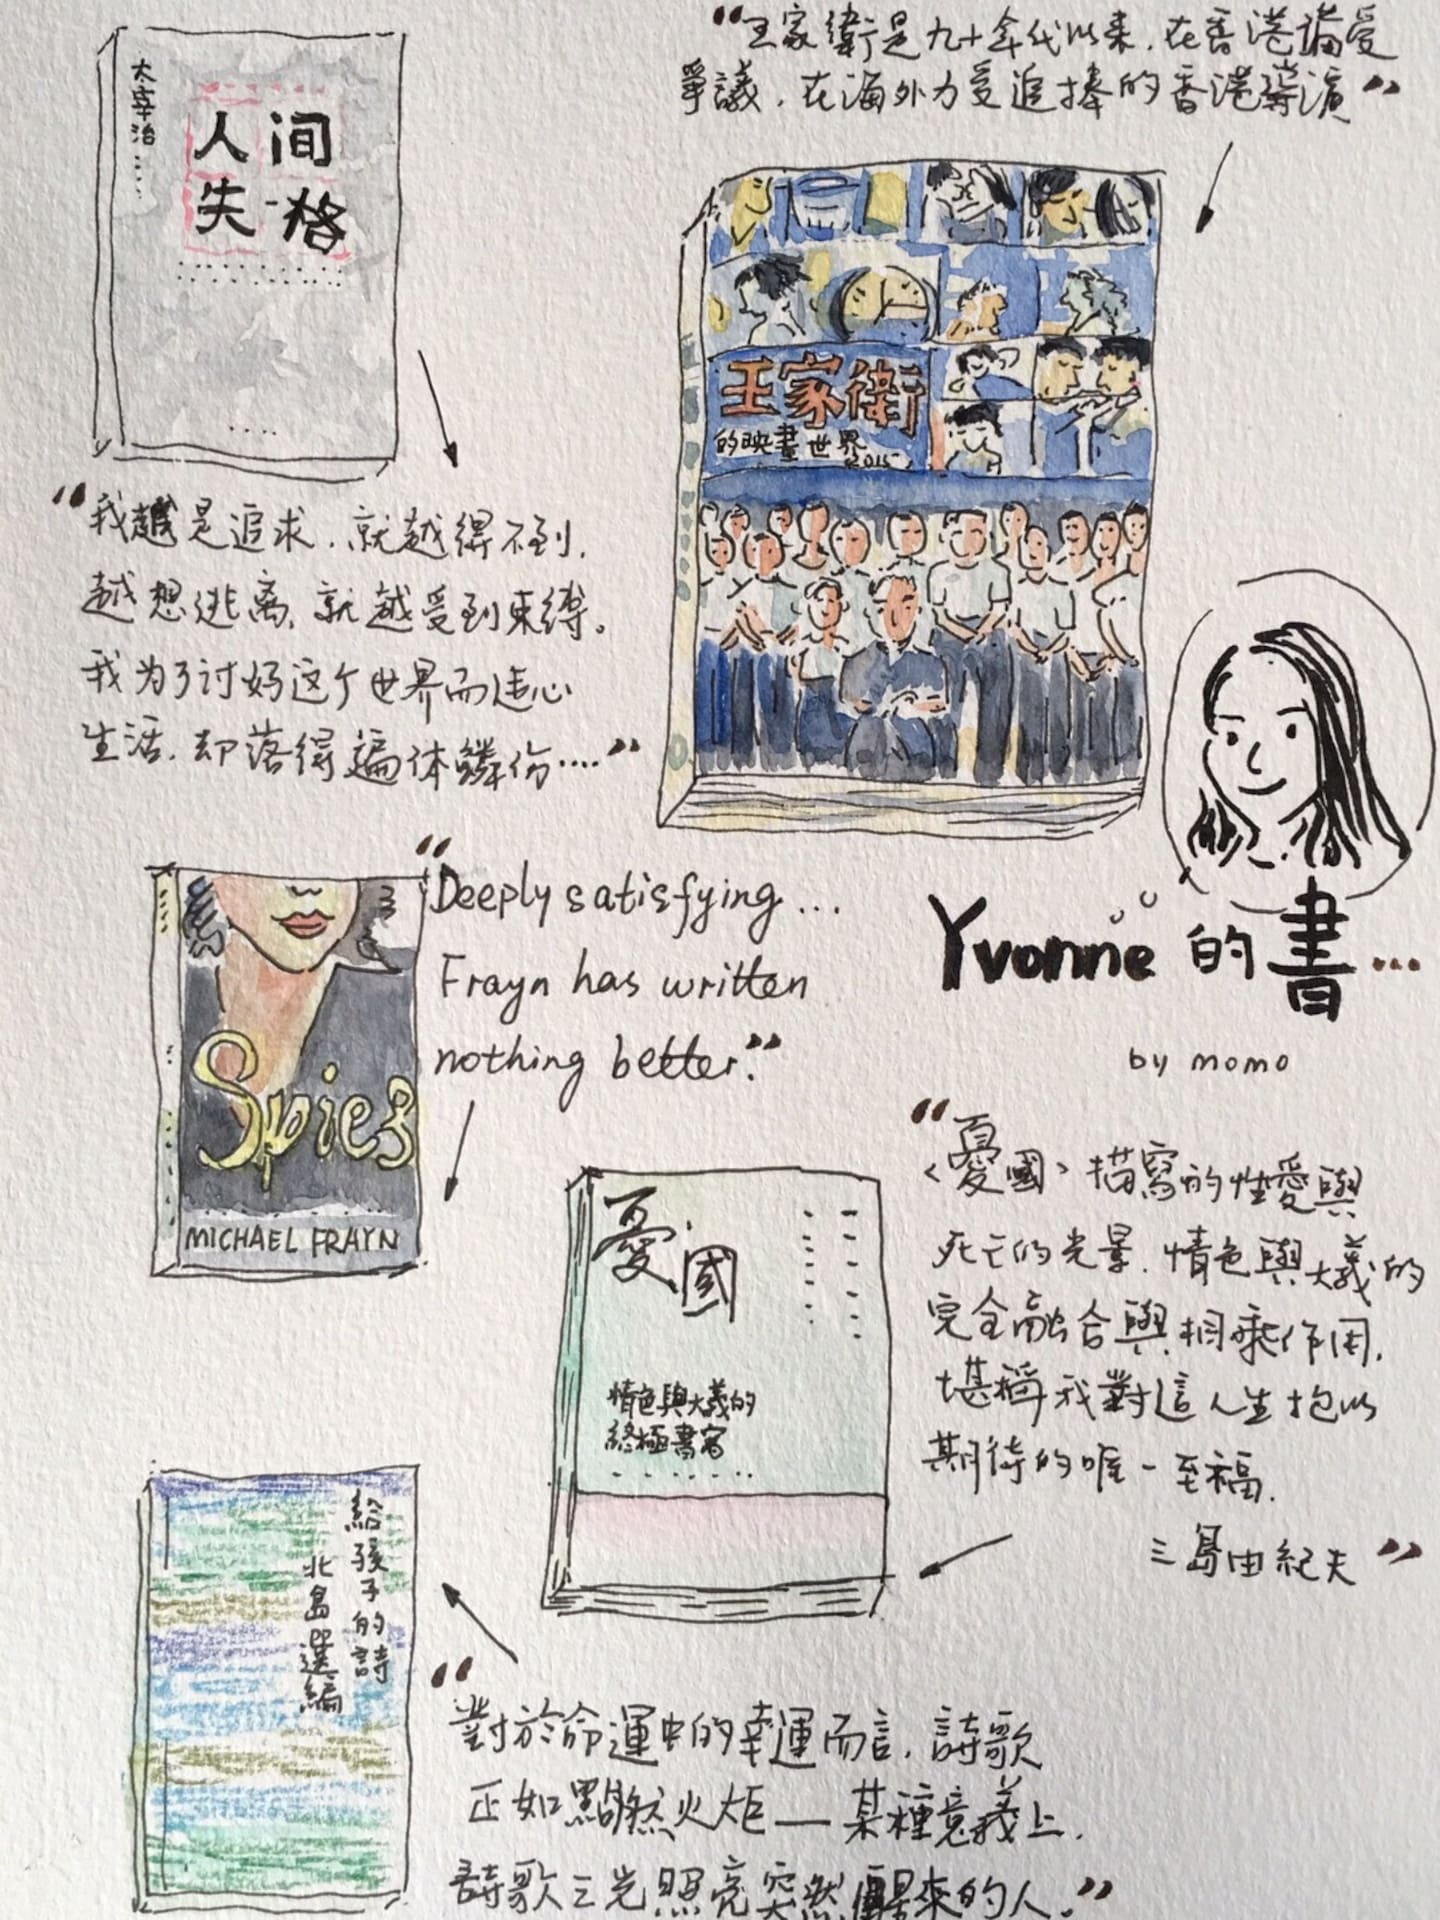 太宰治
人间
失格
“王家衛是九十年代以来，在香港備受
爭議，在海外力受追捧的香港導演”
王家衛
的映畫世界
2015
“我越是追求，就越得不到，
越想逃离，就越受到束缚。
我为了讨好这个世界而违心
生活，却落得遍体鳞伤....”
“Deeply satisfying...
Frayn has written
nothing better.”
Spies
MICHAEL FRAYN
Yvonne 的書...
by momo
憂國
情色與大義的
終極書寫
“〈憂國〉描寫的性愛與
死亡的光景，情色與大義的
完全融合與相乘作用，
堪稱我對這人生抱以
期待的唯一至福.
三島由紀夫”
給孩子的詩
北島選編
“對於命運中的幸運而言，詩歌
正如點燃火炬——某種意義上，
詩歌之光照亮突然醒來的人。”